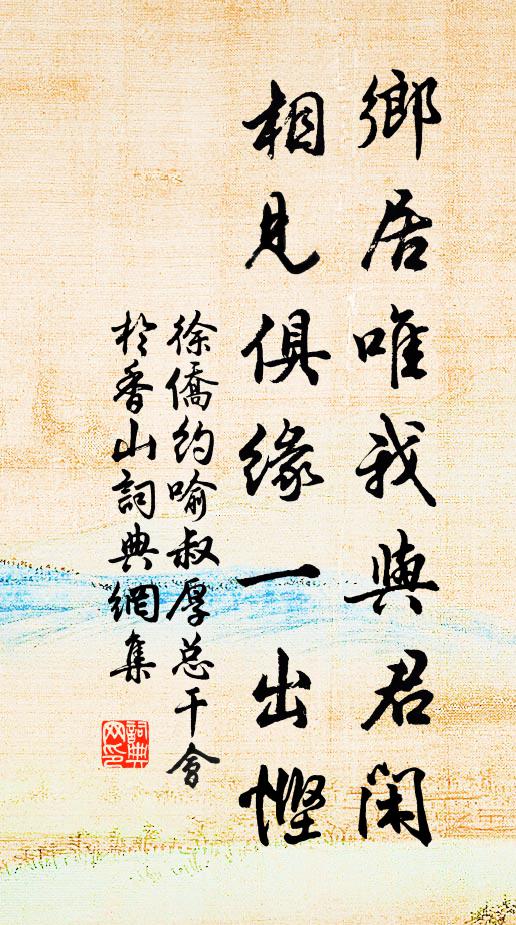 鄉居唯我與君闲
相見俱緣一出慳
徐僑約喻叔厚总干會
於香山詞典網集
詞典网印